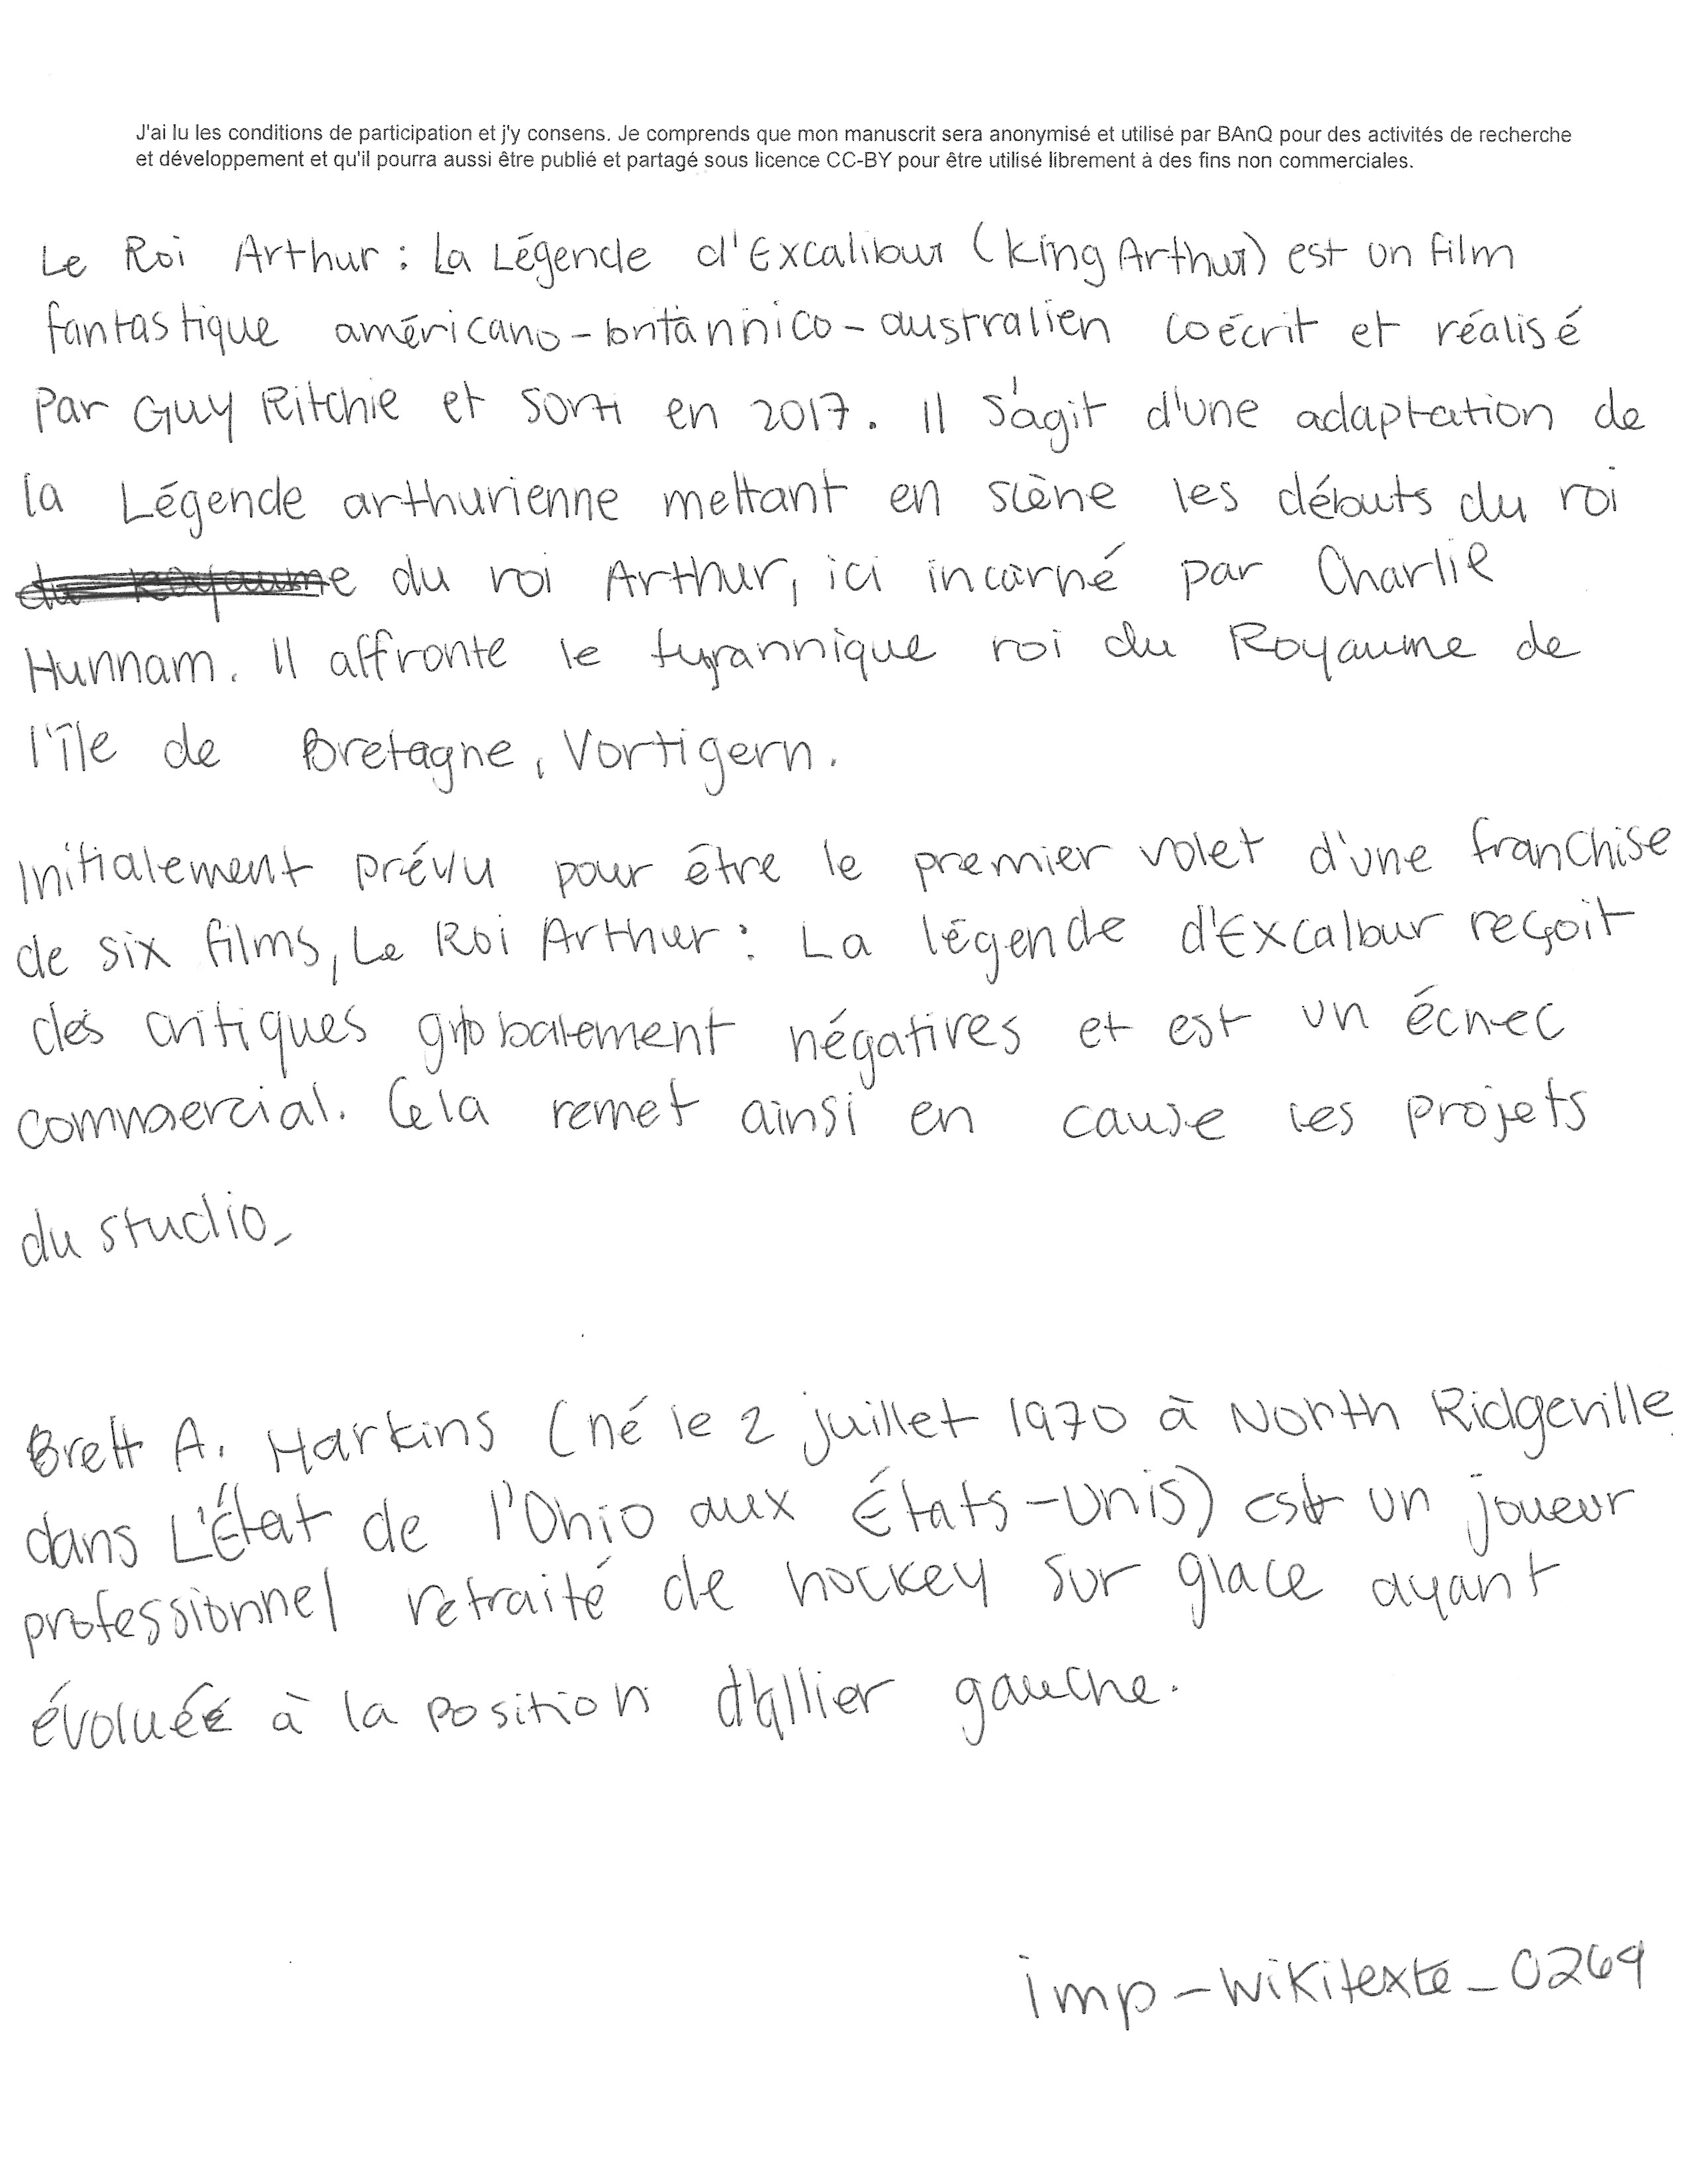 J'ai lu les conditions de participation et j'y consens. Je comprends que mon manuscrit sera anonymisé et utilisé par BAnQ pour des activités de recherche
et développement et qu'il pourra aussi être publié et partagé sous licence CC-BY pour être utilisé librement à des fins non commerciales.
Le Roi Arthur : La Légende d'Excalibur (King Arthur) est un film
fantastique américano-britannico-australien coécrit et réalisé
par Guy Ritchie et sorti en 2017. Il s'agit d'une adaptation de
la Légende arthurienne mettant en scène les débuts du roi
du royaume du roi Arthur, ici incarné par Charlie
Hunnam. Il affronte le tyrannique roi du Royaume de
l'île de Bretagne, Vortigern.
Initialement prévu pour être le premier volet d'une franchise
de six films, Le Roi Arthur : La légende d'Excalbur reçoit
des critiques globalement négatives et est un échec
commercial. Cela remet ainsi en cause les projets
du studio.
Brett A. Harkins (né le 2 juillet 1970 à North Ridgeville
dans L'État de l'Ohio aux États-Unis) est un joueur
professionnel retraité de hockey sur glace ayant
évoluée à la position d'allier gauche.
imp-wikitexte_0269